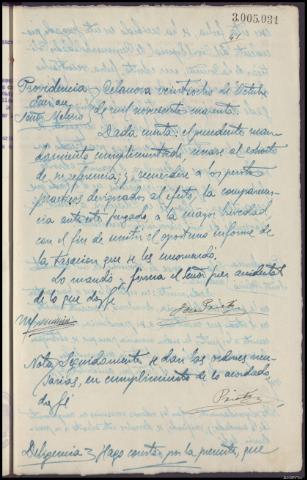 3.005.031
Providencia Celanova veintiocho de Octubre
Señor de mil novecientos cuarenta
Dada cuenta; el precedente man-
damiento cumplimentado, unase al
de referencia; y a los peritos
practicos designados al efecto, la comparecen-
cia ante este Juzgado, a la mayor brevedad,
con el fin de emitir el oportuno informe de
la tasacion que se les encomendó.
Lo mandó y firma el Señor Juez accidental
de lo que doy fe
Nota: Seguidamente se dan las ordenes nece-
sarias, en cumplimiento de lo acordado
doy fe
Diligencia = Hago constar por la presente, que